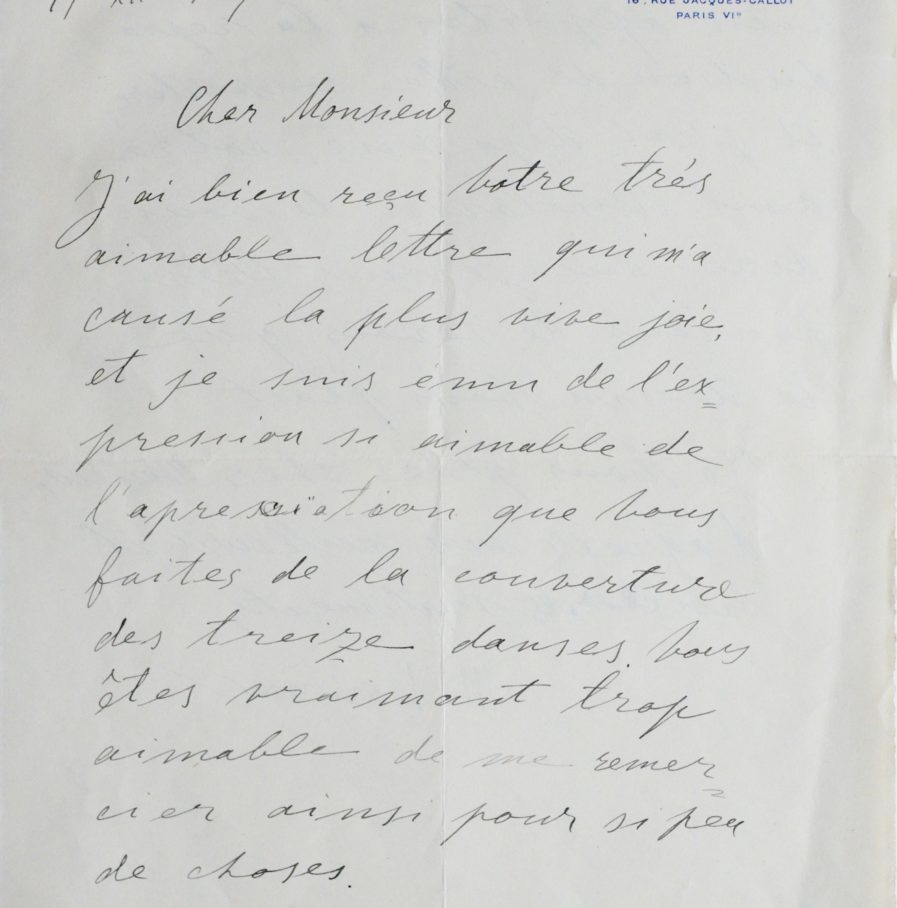 16, RUE JACQUES-CALLOT
PARIS VIᵉ
Cher Monsieur
J'ai bien reçu votre très
aimable lettre qui m'a
causé la plus vive joie,
et je suis ému de l'ex=
pression si aimable de
l'apresciation que vous
faites de la couverture
des treize danses. Vous
êtes vraimant trop
aimable de me remer=
cier ainsi pour si peu
de choses.